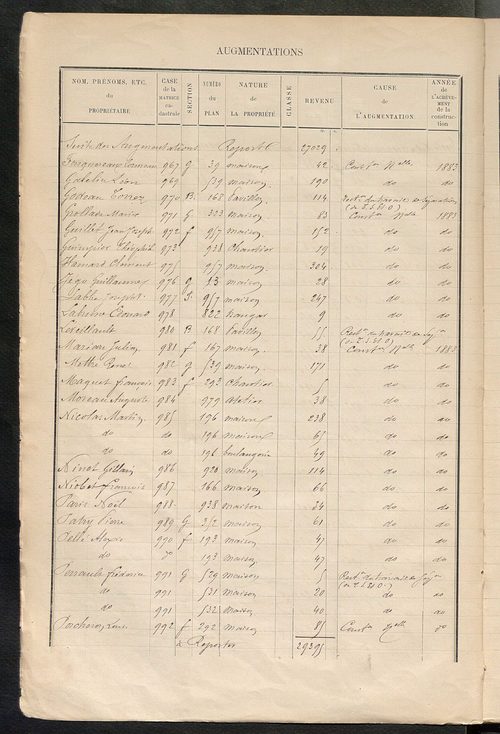 AUGMENTATIONS
NOM, PRÉNOMS, ETC. du PROPRIÉTAIRE
CASE de la MATRICE cadastrale
SECTION
NUMÉRO du PLAN
NATURE de LA PROPRIÉTÉ
CLASSE
REVENU
CAUSE de L'AUGMENTATION
ANNÉE de L'ACHÈVEMENT de la construction
Suite des Augmentations Report 27029
967 g 39 maison 42 Const.on Nelle 1883
Léon 969 539 maison 190 do do
970 B 168 Pavillon 114
Marie 971 G 323 maison 83 Const.on Nelle 1883
Guillet Jean Joseph 972 f 957 maison 152 do do
973 938 Chantier 19 do do
975 957 maison 304 do do
Jego Guillaume 976 g 13 maison 28 do do
Joseph 977 S 957 maison 247 do do
Edouard 978 822 hangar 9 do do
980 B 168 Pavillon 55
Julien 981 f 167 maison 38 Const.on Nelle 1883
René 982 g 539 maison 171 do do
Maquet François 983 f 293 Chantier 5 do do
Moreau Auguste 984 979 atelier 38 do do
Nicolas Martin 985 196 maison 238 do do
do do 196 maison 67 do do
do do 196 boulangerie 49 do do
986 920 maison 114 do do
François 987 266 maison 66 do do
Noël 988 938 maison 34 do do
Patry Pierre 989 G 252 maison 61 do do
Pelle 990 f 193 maison 47 do do
do do 193 maison 47 do do
Perrault Frédéric 991 G 529 maison 5
do 991 531 maison 20 do do
do 991 532 maison 40 do do
992 f 292 maison 85 Const.on Nelle do
à Reporter 29395